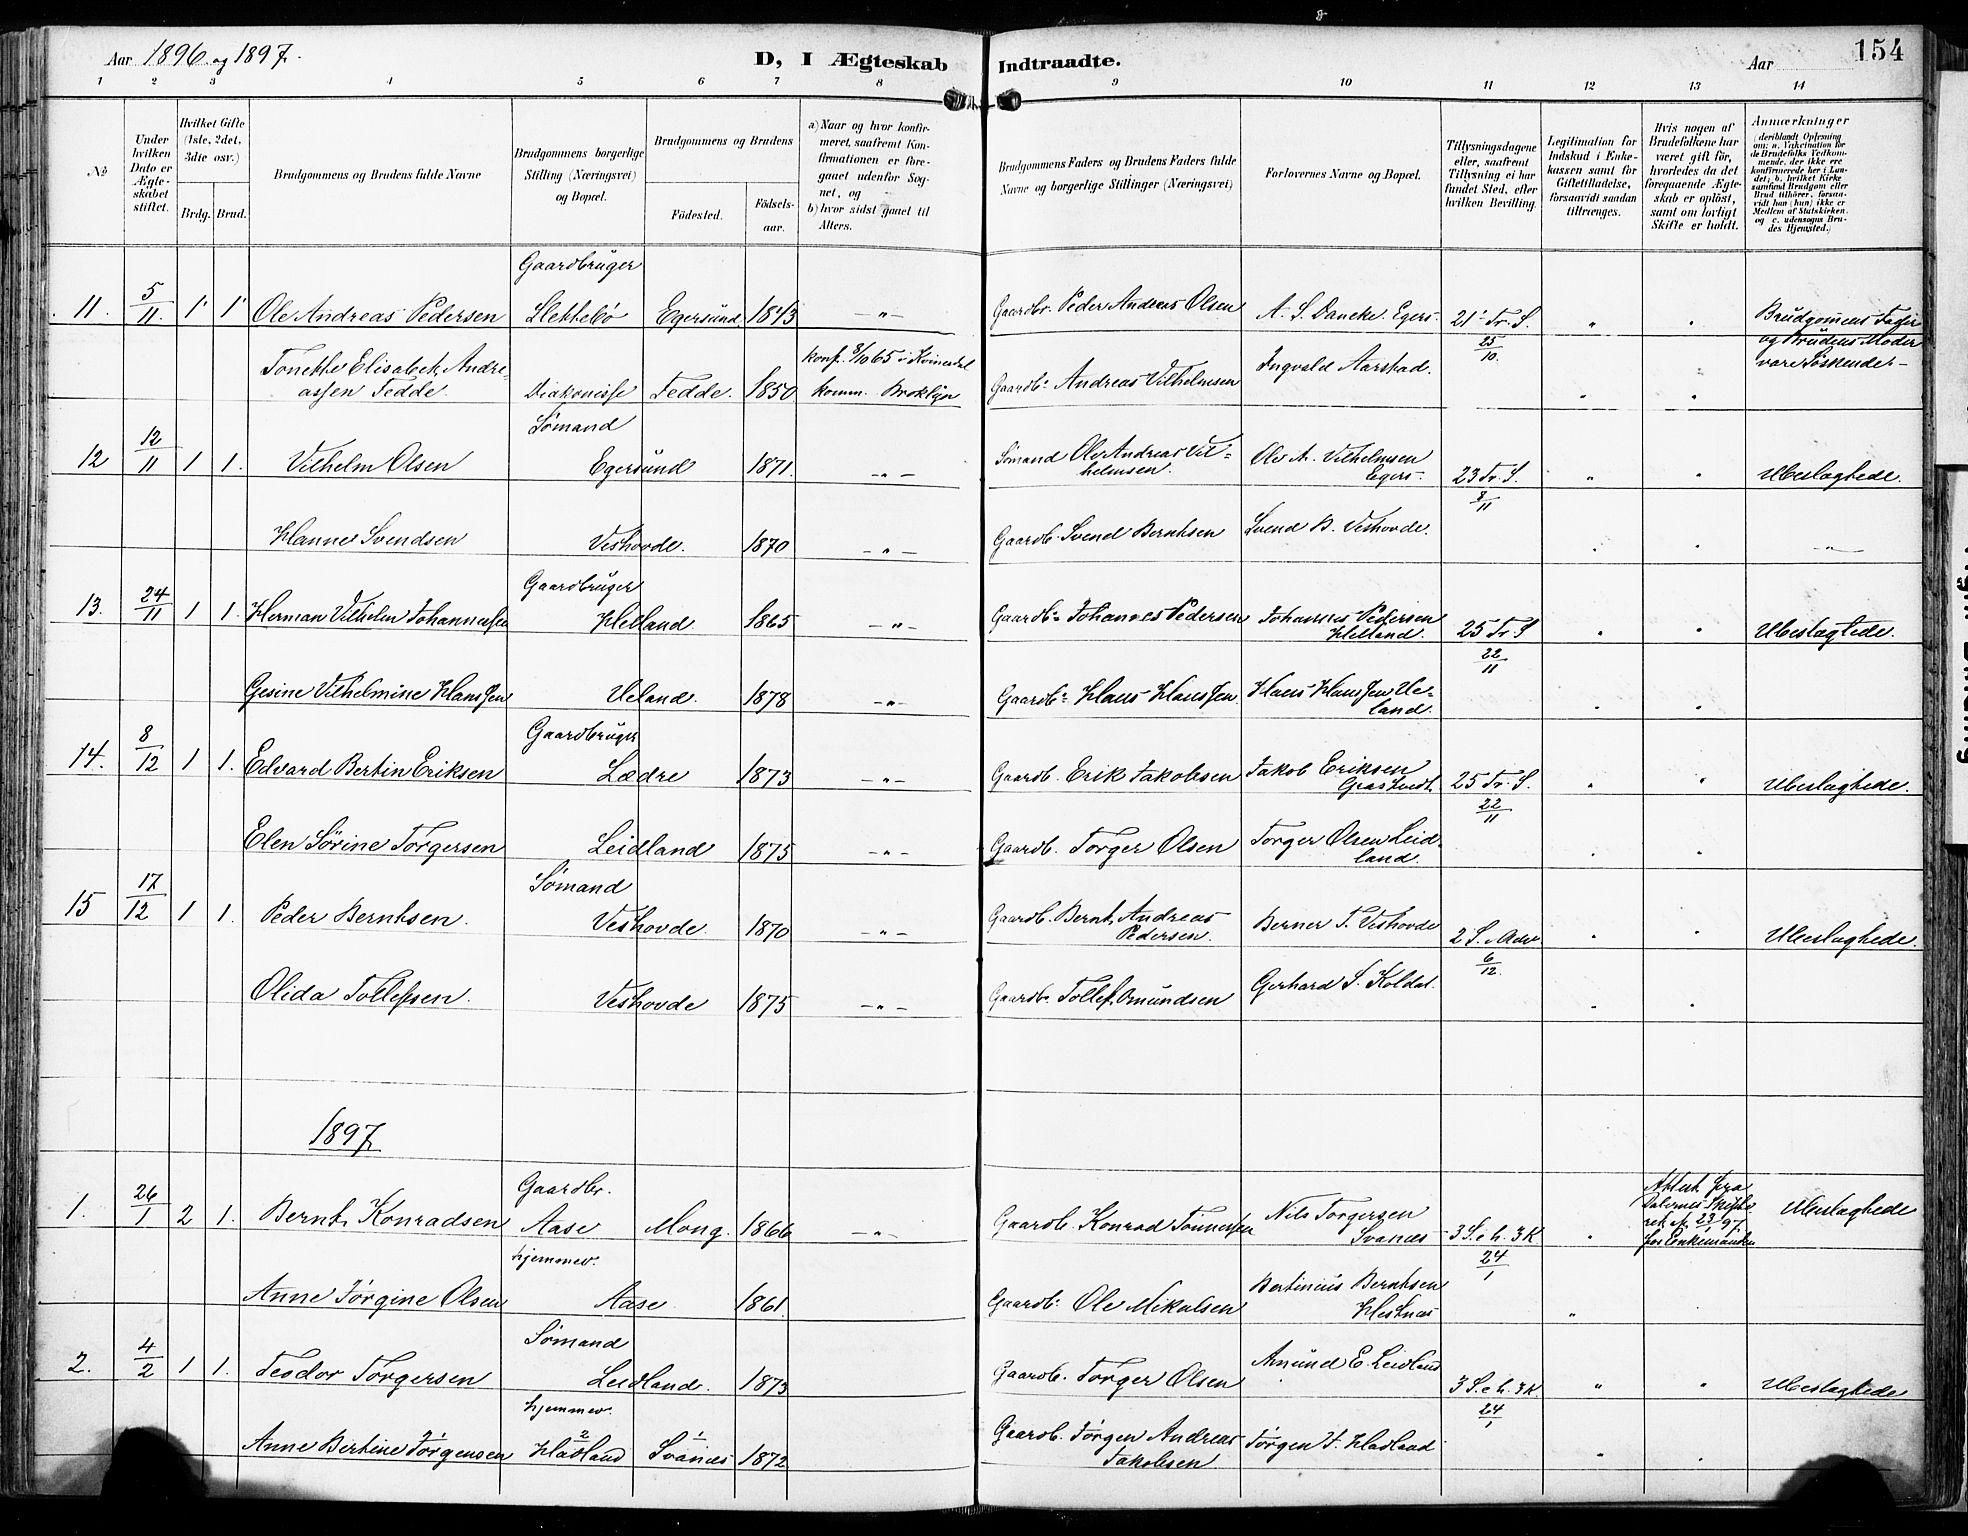 Aar 1896 og 1897. D, I Ægteskab Indtraadte. Aar 154
1 2 3 4 5 6 7 8 9 10 11 12 13 14
№
Under hvilken Dato er Ægteskabet stiftet.
Hvilket Gifte (1ste, 2det, 3die osv.)
Brdg. Brud.
Brudgommens og Brudens fulde Navne
Brudgommens borgerlige Stilling (Næringsvei) og Bopæl.
Brudgommens og Brudens
Fødested. Fødselsaar.
a) Naar og hvor konfirmeret, saafremt Konfirmationen er foregaaet udenfor Sognet, og
b) hvor sidst gaaet til Alters.
Brudgommens Faders og Brudens Faders fulde Navne og borgerlige Stillinger (Næringsvei)
Forlovernes Navne og Bopæl.
Tillysningsdagene eller, saafremt Tillysning ei har fundet Sted, efter hvilken Bevilling.
Legitimation for Indskud i Enkekassen samt for Giftetilladelse, forsaavidt saadan tiltrænges.
Hvis nogen af Brudefolkene har været gift før, hvorledes da det foregaaende Ægteskab er opløst, samt om lovligt Skifte er holdt.
Anmærkninger
(deriblandt Oplysning om: a. Vakcination for de Brudefolks Vedkommende, der ikke ere konfirmerede her i Landet; b. hvilket Kirkesamfund Brudgom eller Brud tilhører, forsaavidt han (hun) ikke er Medlem af Statskirken, og c. udensogns Brudes Hjemsted.)
Gaardbruger
11. 5/11 1 1 Ole Andreas Pedersen Slettebö Egersund 1843 -"- Gaardbr. Peder Andreas Olsen A. S. Dancke Egers. 21' Tr. S. 25/10 " " Brudgomens Fader
og Brudens Moder
vare Søskende-
Tonette Elisabet Andre-
assen Fedde. Diakonisse Fedde. 1850 konf. 8/10 65 i Kvinesdal
komm. Broklyn Gaardb. Andreas Vilhelmsen Ingvald Aarstad. " "
Sømand
12 12/11 1 1. Vilhelm Olsen Egersund 1871. -"- Sømand Ole Andreas Vil-
helmsen. Ole A. Vilhelmsen
Egers. 23 Tr. S. 8/11 " " Ubeslagtede.
Hanne Svendsen Veshovde. 1870 -"- Gaardb. Svend Berntsen Svend B. Veshovde. " " "
Gaardbruger
13. 24/11 1 1. Herman Vilhelm Johannessen Helland. 1865 -"- Gaardb. Johannes Pedersen Johannes Pedersen
Helland. 25 Tr. S 22/11 " " Ubeslagtede.
Gesine Vilhelmine Hanssen Ueland. 1878 -"- Gaardb. Hans Hanssen Hans Hanssen Ue-
land. " "
Gaardbruger
14. 8/12 1 1. Edvard Bertin Eriksen Lædre 1873 -"- Gaardb. Erik Jakobsen Jakob Eriksen
25 Tr. S. 22/11 " " Ubeslagtede.
Elen Sörine Torgersen Leidland 1875 -"- Gaardb. Torger Olsen Torger Olsen Leid-
land. " "
Sømand
15 17/12 1 1. Peder Berntsen. Veshovde. 1870 -"- Gaardb. Bernt Andreas
Pedersen. Berner T. Veshovde 2 S. i Adv. 6/12. " " Ubeslagtede.
Olida Tollefsen. Veshovde 1875 -"- Gaardb. Tollef Omundsen Gerhard S. Koldal. " "
1897
Gaardbr.
1. 26/1 2 1. Bernt Konradsen Aase Mong. 1866 -"- Gaardb. Konrad Tønnessen Nils Torgersen
Svanes 3 S. e. h. 3 K 24/1 " Attest fra
Dalernes Skifte-
ret A. 23/1 97.
for Enkemanden Ubeslagtede
hjemmev.
Anne Jörgine Olsen Aase. 1861. Gaardb. Ole Mikalsen Bertinius Berntsen
Hestnes "
Sømand
2. 4/2 1 1. Teodor Torgersen Leidland. 1873 Gaardb. Torger Olsen Amund E. Leidland 3 S. e. h. 3 K. 24/1 " " Ubeslagtede
hjemmev.
Anne Bertine Jörgensen 2 Hadland 1 Svanes 1872 Gaardb. Jörgen Andreas
Jakobsen Jörgen J. Hadland " "